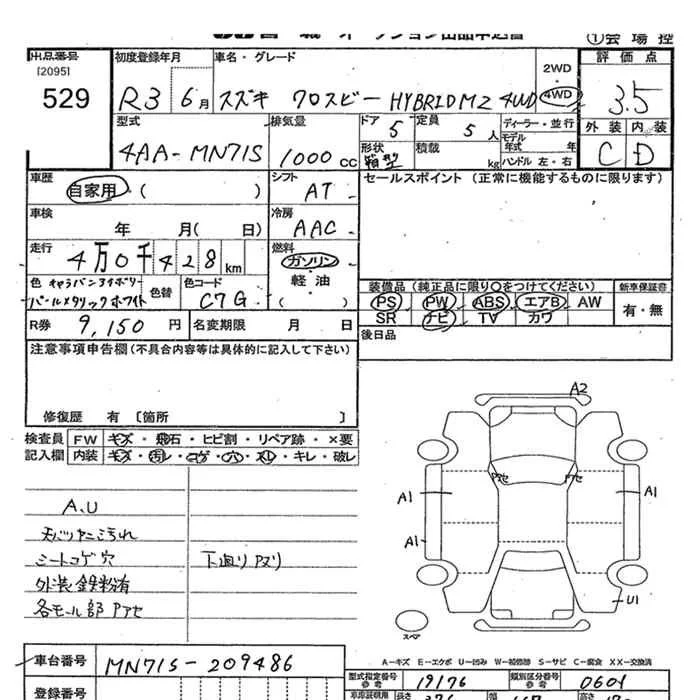 ①会場控
出品番号
[2095]
529
初度登録年月
R3 6月
車名・グレード
スズキ クロスビー HYBRID MZ 4WD
2WD・4WD
評価点
3.5
外装 内装
C D
型式
4AA-MN71S
排気量
1000 cc
ドア 5
形状 箱型
定員 5人
積載 kg
ディーラー・並行
モデル年式 年
ハンドル 左・右
車歴
自家用 ( )
シフト
AT
セールスポイント (正常に機能するものに限ります)
車検
年 月( 日)
冷房
AAC
走行
4万0千428km
燃料
ガソリン・軽油・( )
色 キャラバンアイボリーパールメタリックホワイト
色替
色コード
C7G
装備品 (純正品に限り○をつけてください)
PS PW ABS エアB AW
SR ナビ TV カワ
新車保証書
有・無
R券 9,150円
名変期限 月 日
後日品
注意事項申告欄(不具合内容等は具体的に記入して下さい)
修復歴 有 [箇所 ]
検査員記入欄
FW キズ・飛石・ヒビ割・リペア跡・×要
内装 キズ・汚レ・コゲ・穴・スレ・キレ・破レ
A.U
天バリヤニ汚れ
シートコゲ穴
外装鉄粉有
各モール部アセ
下廻りサビ
A2
アセ アセ
A1 A1
A1
U1
スペア
A-キズ E-エクボ U-凹み W-補修跡 S-サビ C-腐食 XX-交換済
車台番号
MN71S-209486
登録番号
型式指定番号
参考
19176
類別区分番号
参考
0601